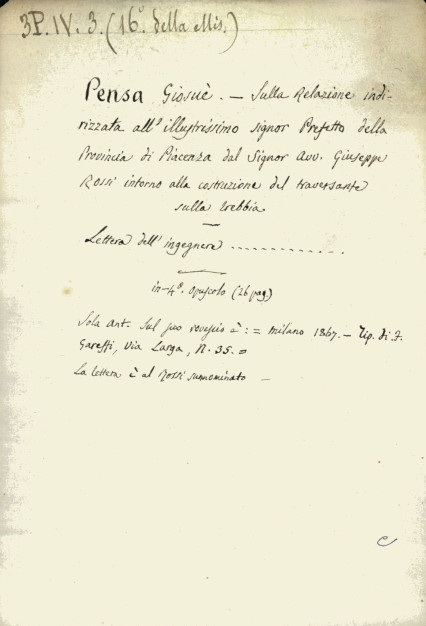 3P. IV. 3. (16º della Mis.)
Pensa Giosuè. — Sulla Relazione indi-
rizzata all'illustrissimo signor Prefetto della
Provincia di Piacenza dal Signor Avv. Giuseppe
Rossi intorno alla costruzione del traversante
sulla Trebbia
Lettera dell'ingegnere .............
in-4º. opuscolo (26 pag.)
Sola ant. Sul suo rovescio è: = Milano 1867. — Tip. di Z.
Gareffi, Via Larga, N. 35. =
La lettera è al Rossi sunnominato —
C